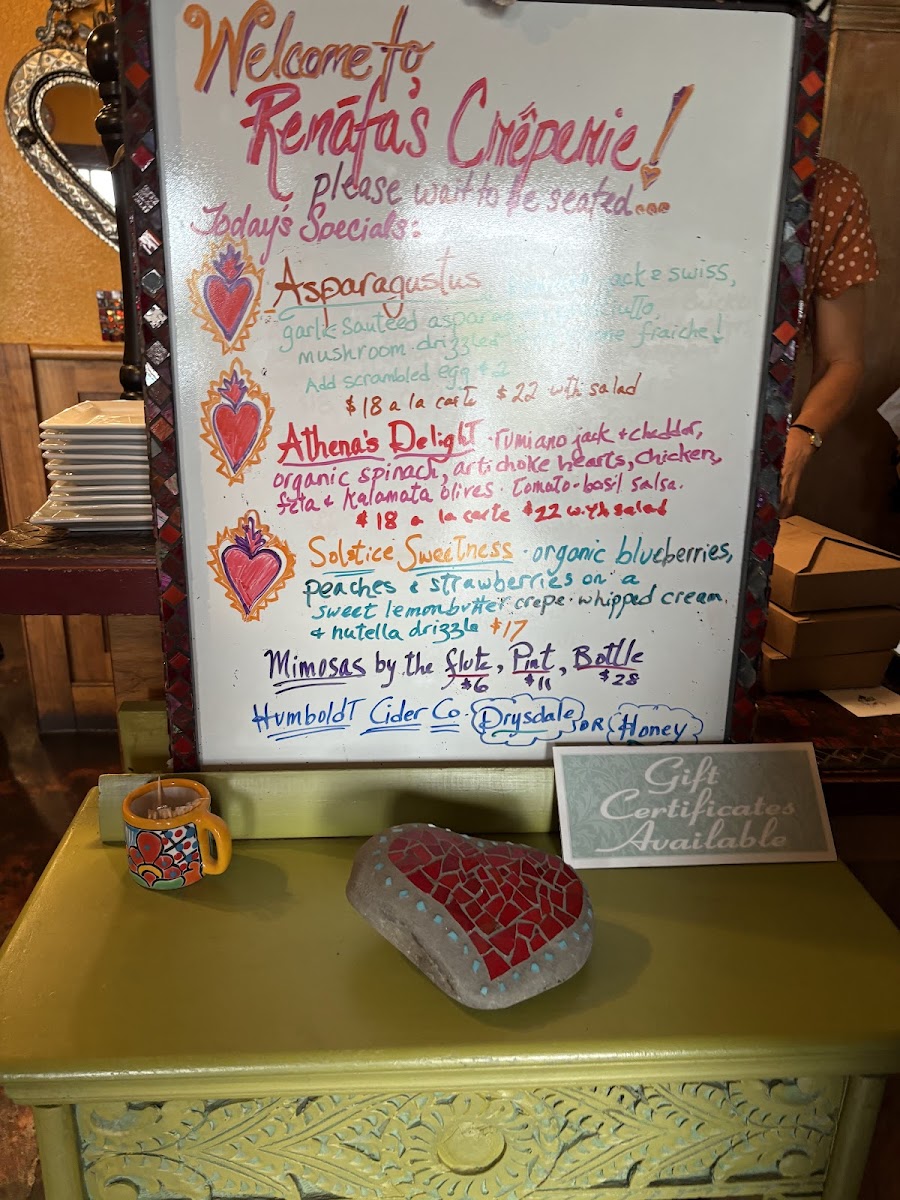 Welcome to
Renāta's Crêperie!
please wait to be seated...
Today's Specials:
Asparagustus jack & swiss,
garlic sauteed
mushroom drizzled fraiche!
Add scrambled egg
$18 a la carte $22 with salad
Athena's Delight · rumiano jack & cheddar,
organic spinach, artichoke hearts, chicken,
feta & Kalamata olives · tomato-basil salsa.
$18 a la carte $22 with salad
Solstice Sweetness · organic blueberries,
peaches & strawberries on a
sweet lemonbutter crepe · whipped cream
& nutella drizzle $17
Mimosas by the flute, Pint, Bottle
$6 $11 $28
Humboldt Cider Co · Drysdale OR Honey
Gift
Certificates
Available